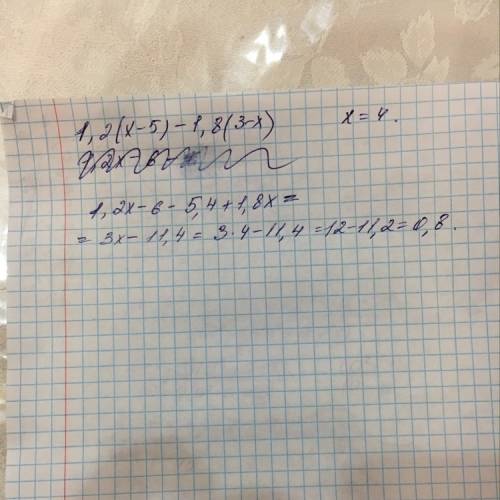 1,2(x-5)-1,8(3-x) x=4.
1,2x-6-5,4+1,8x=
=3x-11,4=3·4-11,4=12-11,2=0,8.